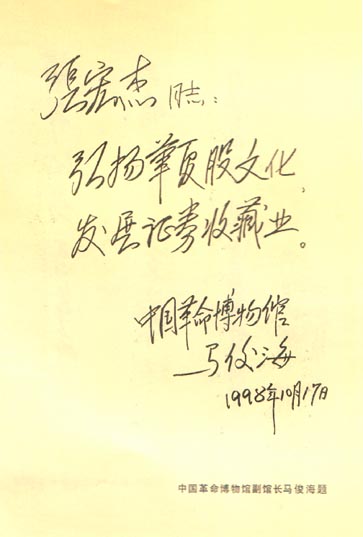 張宏杰同志：
弘扬華夏股文化，
发展证券收藏业。
中国革命博物馆
马俊海
1998年10月17日
中国革命博物馆副馆长马俊海题